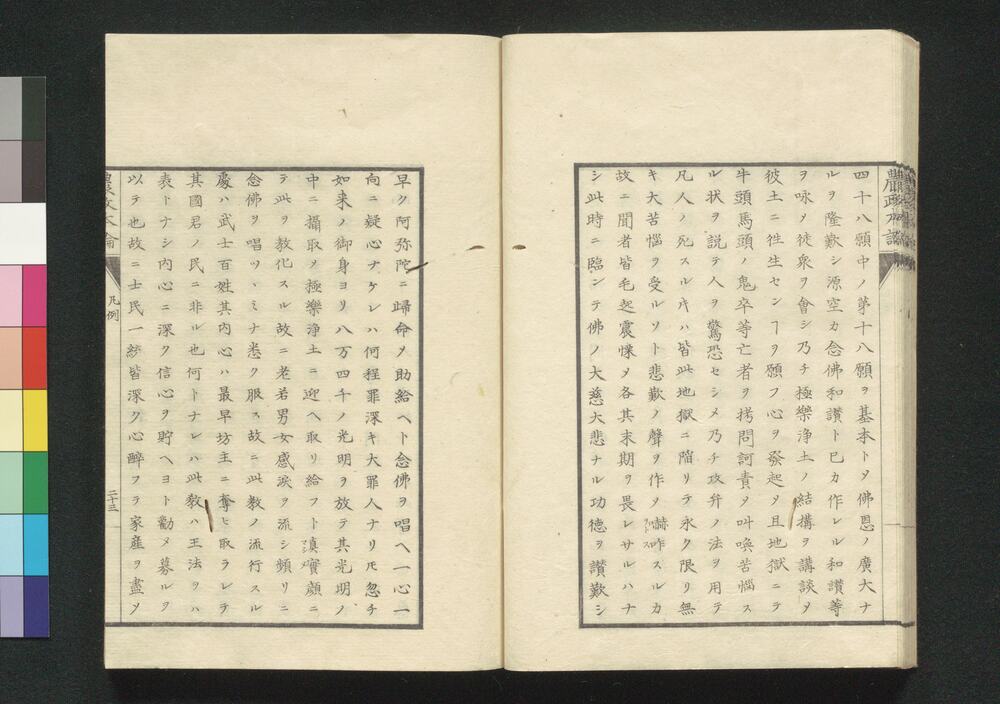 四十八願中ノ第十八願ヲ基本トメ佛恩ノ廣大ナ
ルヲ隆歎シ源空カ念佛和讃ト巳カ作レル和讃等
ヲ咏メ徒衆ヲ會シ乃チ極樂浄土ノ結搆ヲ講談メ
彼土ニ徃生センヿヲ願フ心ヲ發起ヌ且地獄ニテ
牛頭馬頭ノ鬼卒等亡者ヲ拷問訶責ヲ叫喚苦惱ス
ル状ヲ説テ人ヲ驚恐セシメ乃チ攻弁ノ法ヲ用テ
凡人ノ死スル𪜈ハ皆此地獄ニ陷リテ永ク限リ無
キ大苦惱ヲ受ルソト悲歎ノ聲ヲ作メ赫咋スルカ
故ニ聞者皆毛起震慄メ各其末期ヲ畏レサルハナ
シ此時ニ臨ンテ佛ノ大慈大悲ナル功徳ヲ讃歎シ
早ク阿弥陀ニ歸命メ助給ヘト念佛ヲ唱ヘ一心一
向ニ疑心ナケレハ何程罪深キ大罪人ナリ𪜈忽チ
如来ノ御身ヨリ八万四千ノ光明ヲ放テ其光明ノ
中ニ攝取メ極樂浄土ニ迎ヘ取リ給フト眞實顔ニ
テ此ヲ教化スル故ニ老若男女感涙ヲ流シ頻リニ
念佛ヲ唱ツヽミナ悉ク服ス故ニ此教ノ流行スル
處ハ武士百姓其内心ハ最早坊主ニ奪ヒ取ラレテ
其國君ノ民ニ非ル也何トナレハ此教ハ王法ヲハ
表トナシ内心ニ深ク信心ヲ貯ヘヨト勸メ募ルヲ
以テ也故ニ士民一統皆深ク心醉フテ家産ヲ盡メ
凡例
二十三